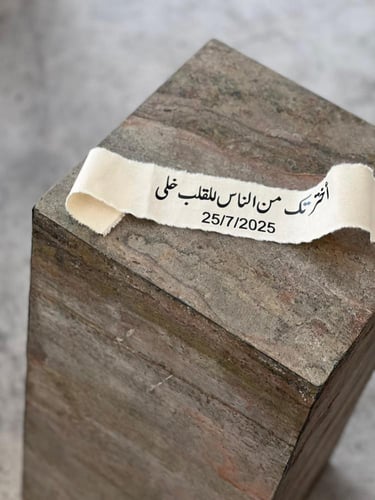 أخترتك من الناس للقلب خلي
25/7/2025